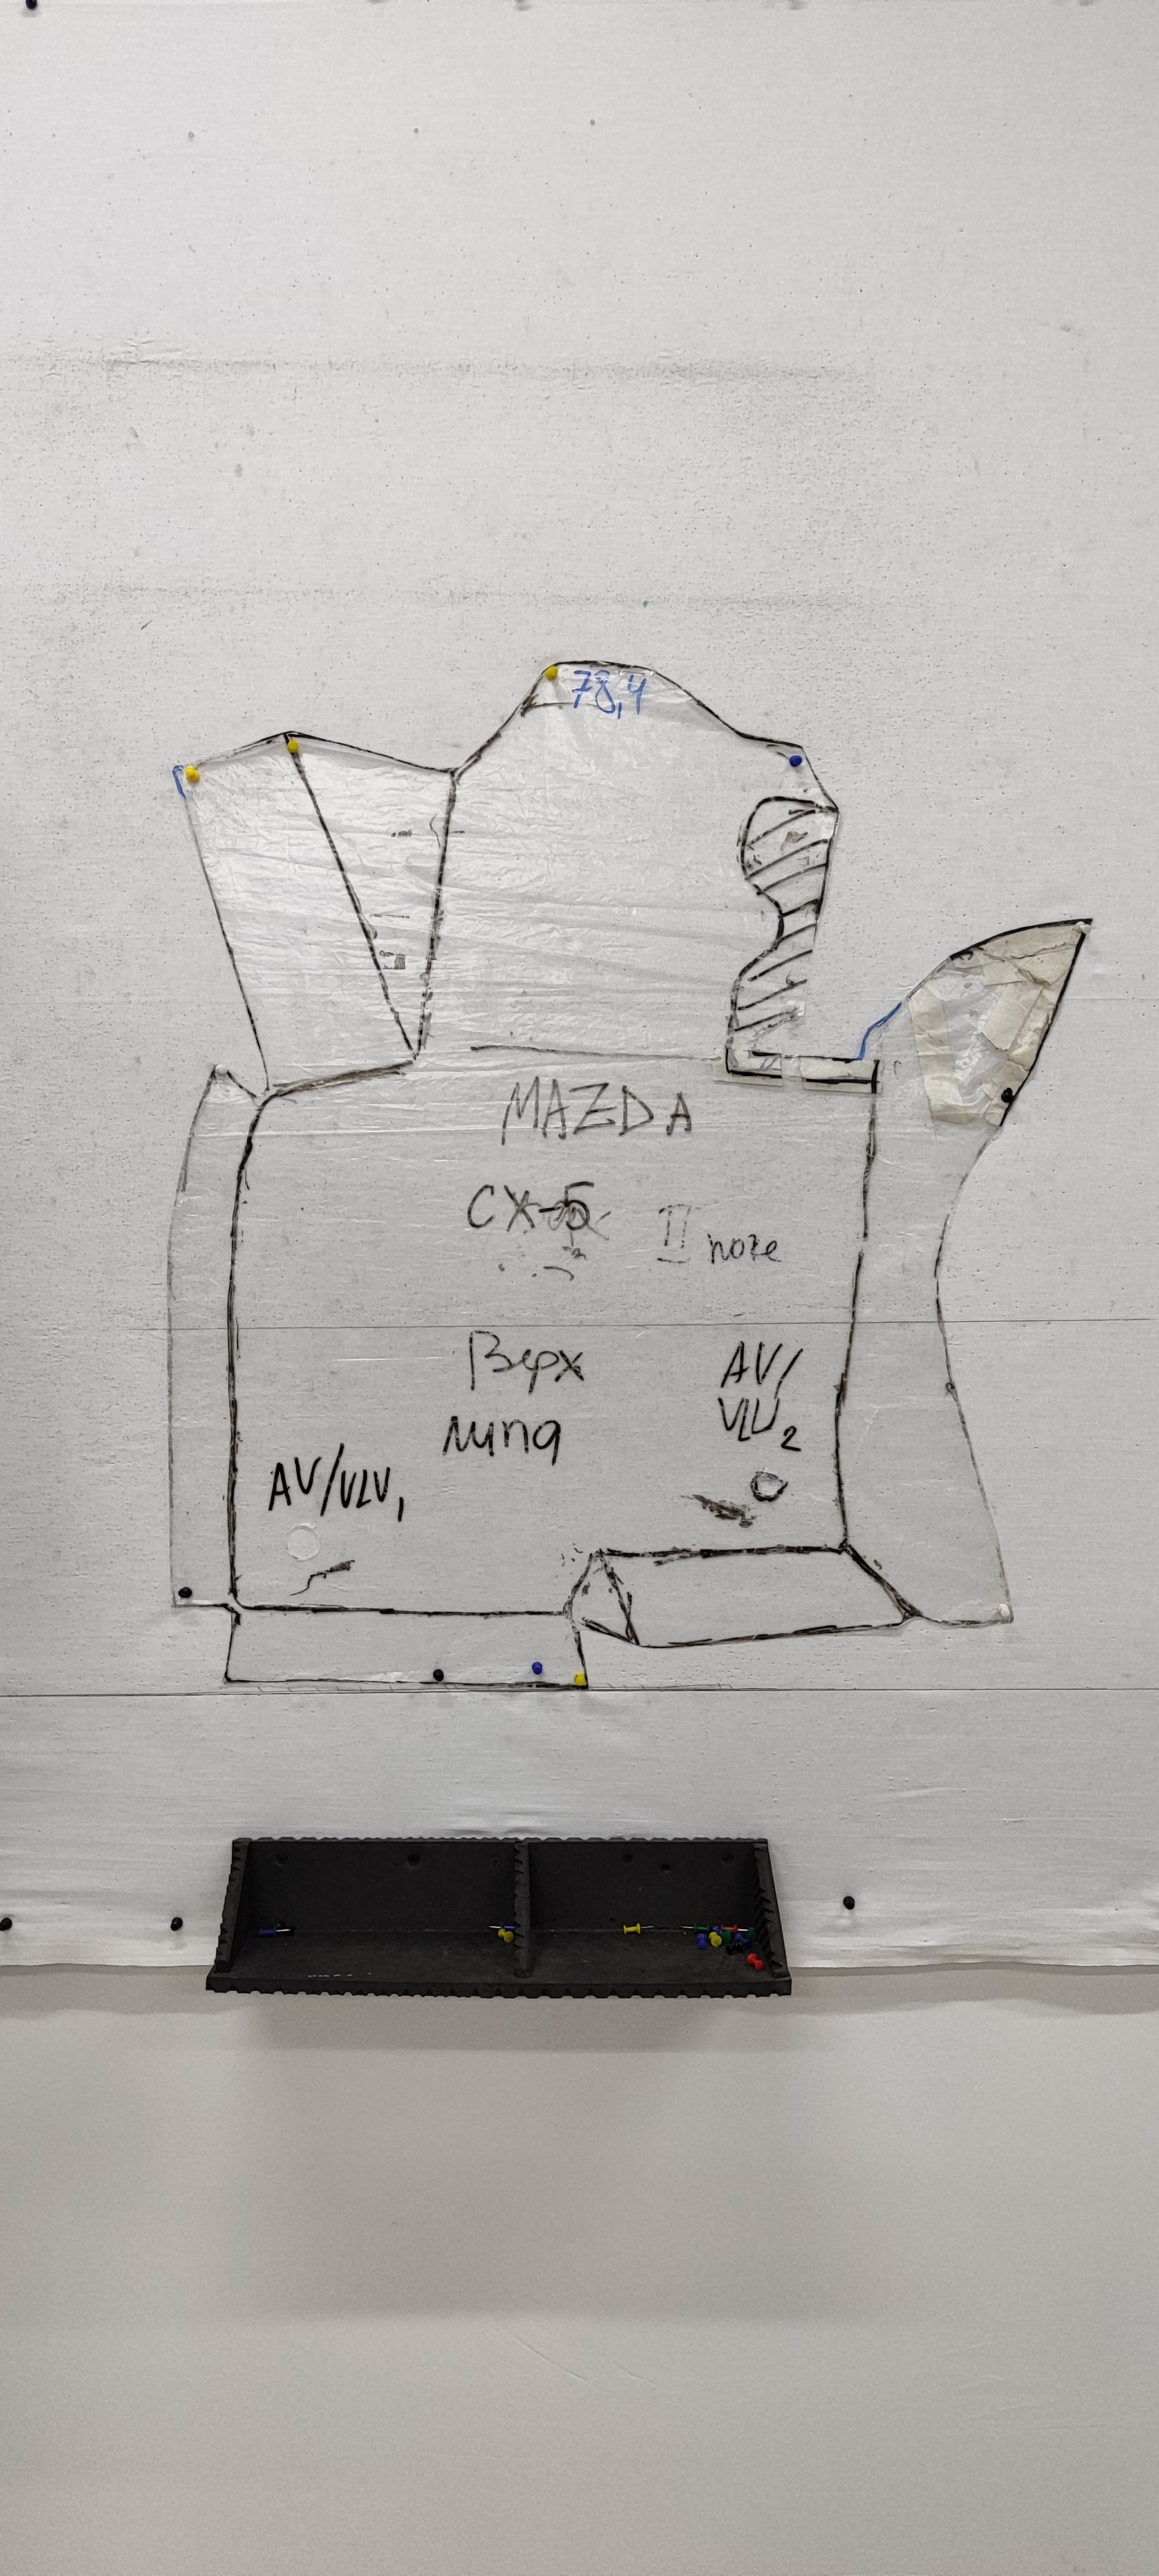 78,4
MAZDA
CX-5
II поле
Верх
липа
AV/
VLV 2
AV/VLV 1